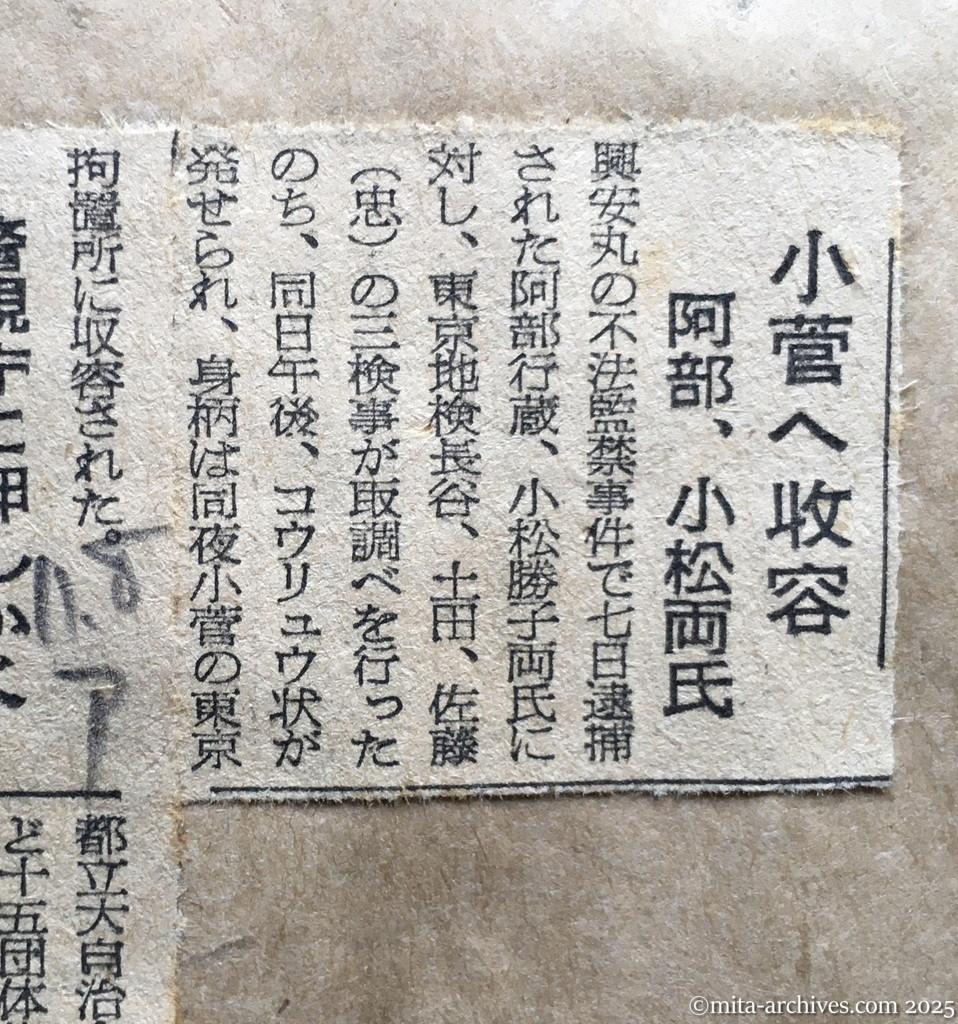 小菅へ収容
阿部、小松両氏
興安丸の不法監禁事件で七日逮捕
された阿部行蔵、小松勝子両氏に
対し、東京地検長谷、土田、佐藤
（忠）の三検事が取調べを行った
のち、同日午後、コウリュウ状が
発せられ、身柄は同夜小菅の東京
拘置所に収容された。
都立大自治
ど十五団体
©mita-archives.com 2025